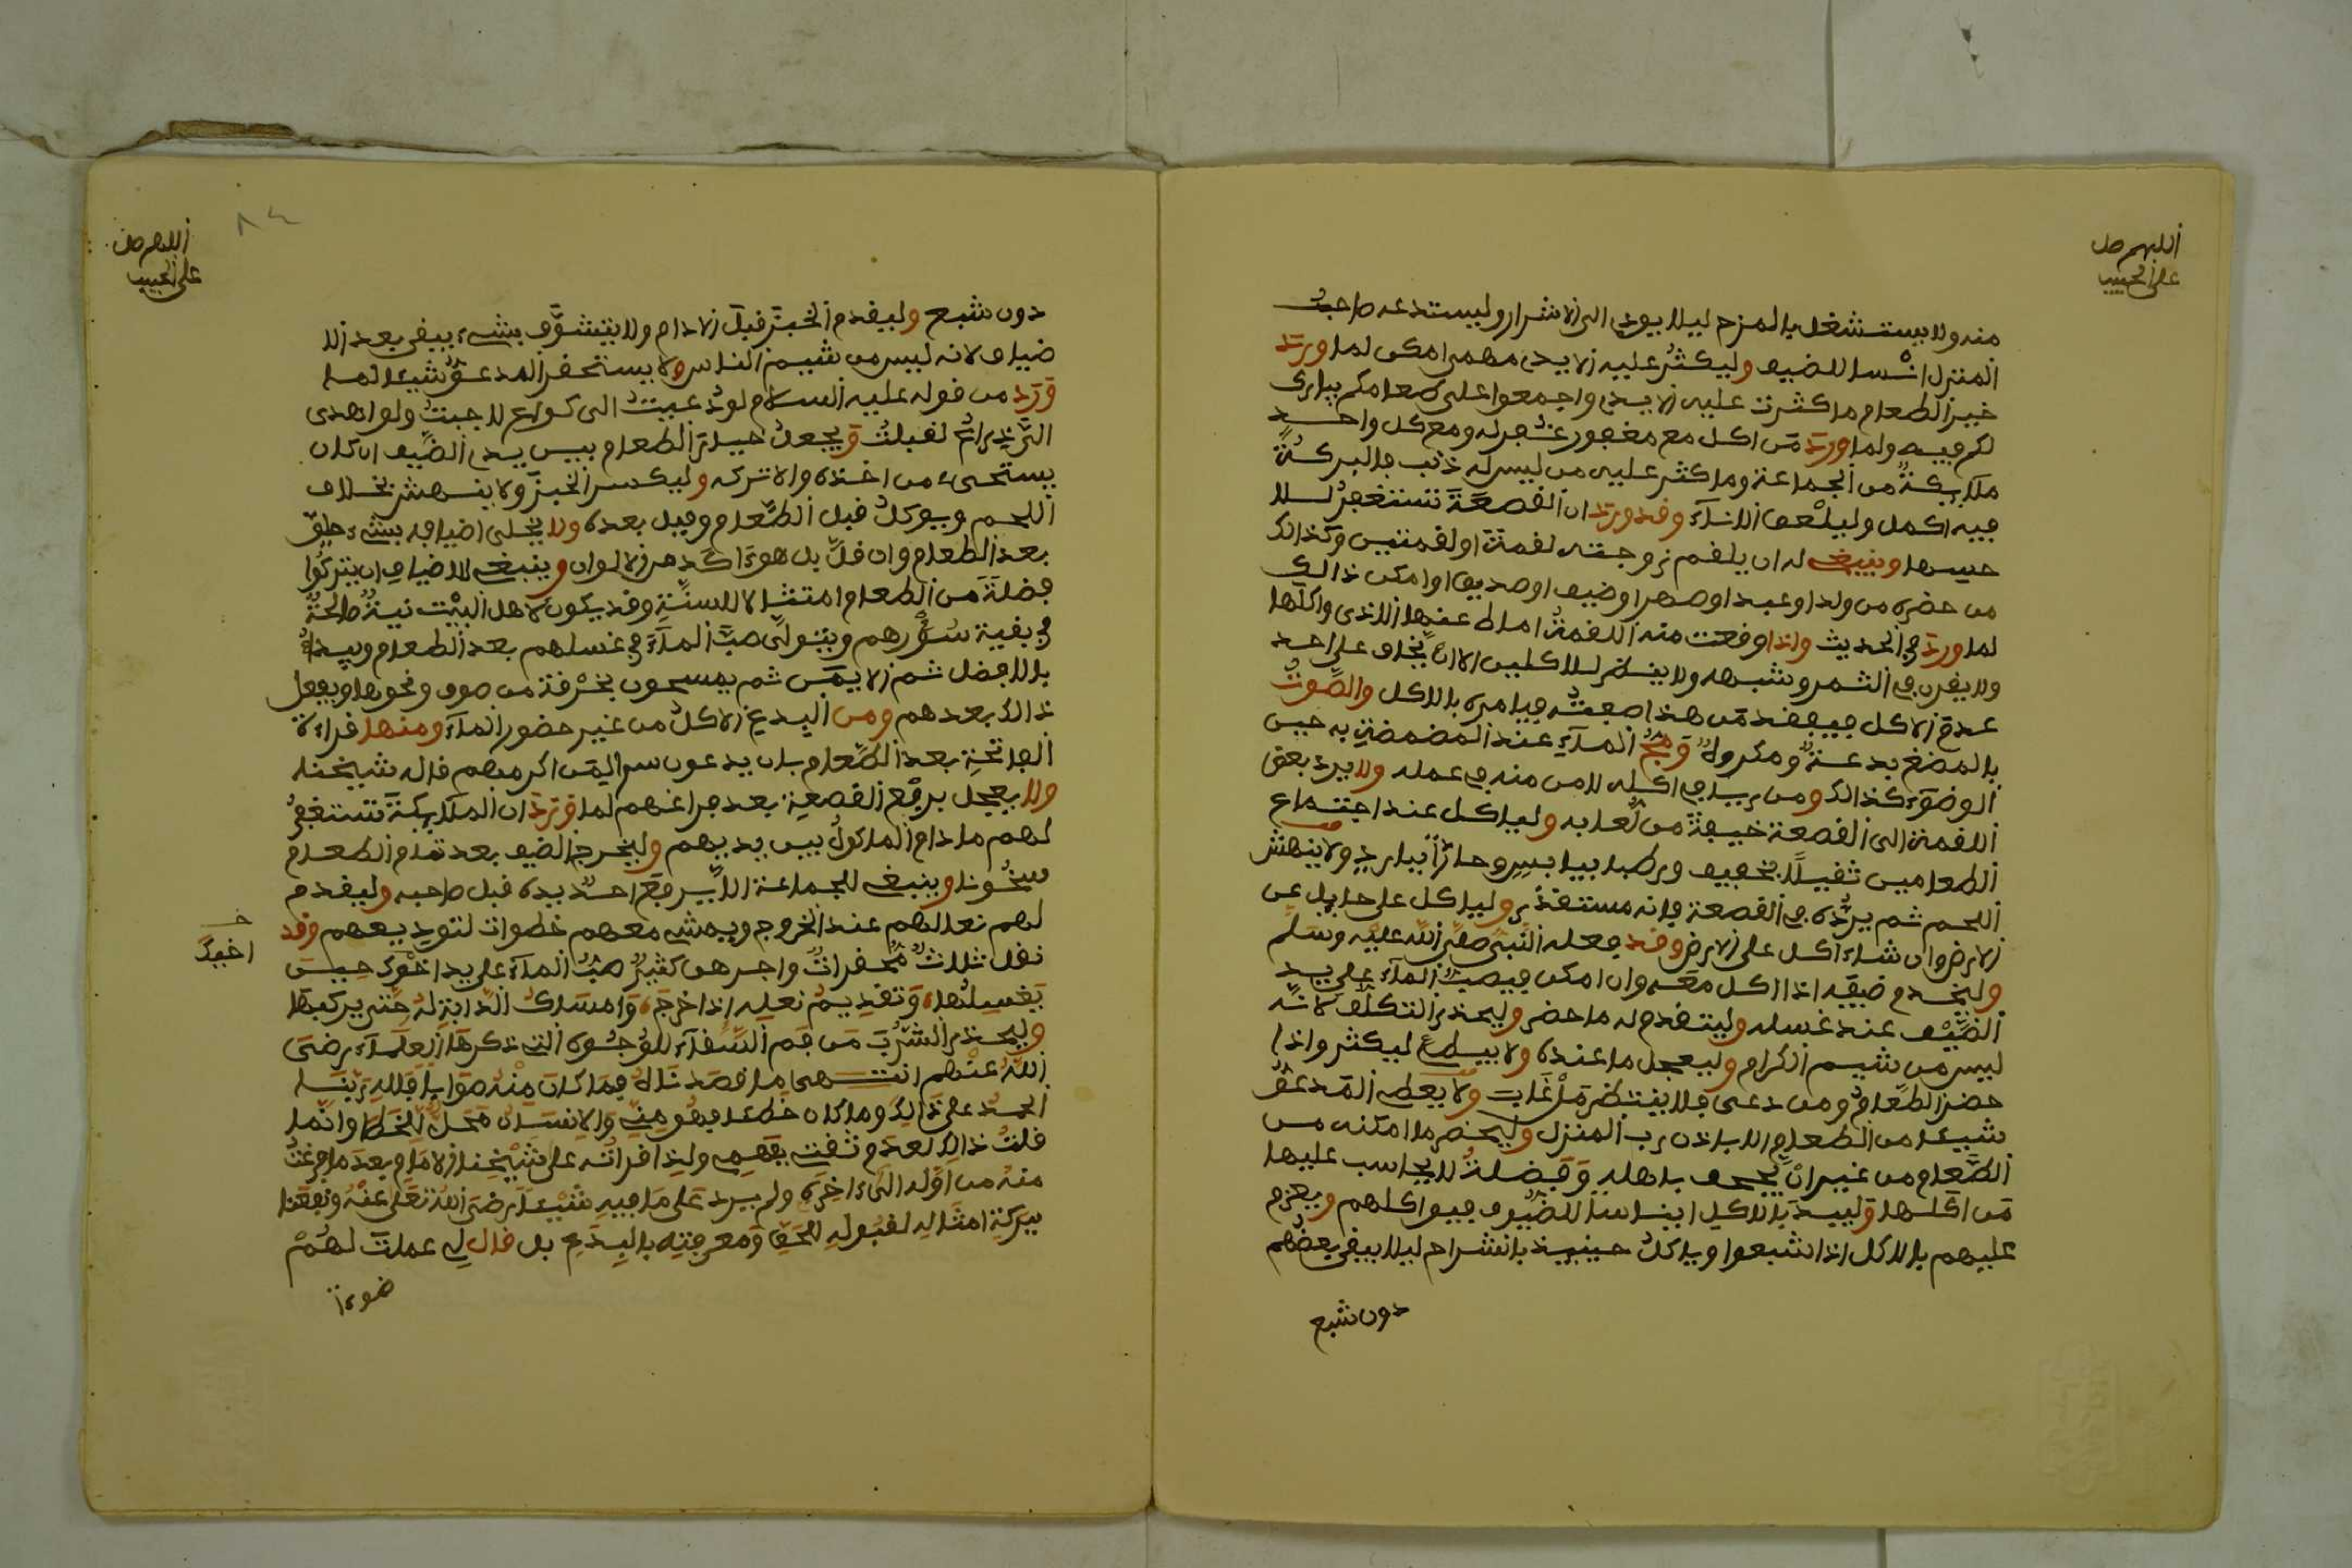 اللهم صل
على الحبيب
منه ولا يستشغل بالمزح ليلا يودي الى الاشرار وليستدعه صاحب
المنزل انسا للضيف وليكثر عليه الايدي مهمى امكن لما ورد
خير الطعام ما كثرت عليه الايدي واجمعوا على طعامكم يبارك
لكم فيه ولما ورد من اكل مع مغفور غفر له ومع كل واحد
ملايكة من الجماعة وما كثر عليه من ليس له ذنب فالبركة
فيه اكمل وليلعق الاناء وقد ورد ان القصعة تستغفر للا
حيسها وينبغي له ان يلقم زوجته لقمة او لقمتين وكذالك
من حضره من ولد او عبد او صهر او ضيف او صديق او امكن ذالك
لما ورد في الحديث واذا وقعت منه اللقمة اماط عنها الاذى واكلها
ولا يقرن في التمر وشبهه ولا ينظر للاكلين الا ان يخاف على احد
عدم الاكل فيفقد من هذا صفته فيامره بالاكل والصوت
بالمضغ بدعة ومكروه ومج الماء عند المضمضة به حين
الوضوء كذالك ومن يراي في اكله لامن منه في عمله ولا يرد بعض
اللقمة الى القصعة خيفة من لعابه ولياكل عند اجتماع
الطعامين ثقيلا بخفيف ورطبا بيابس وحارا ببارد ولا ينهش
اللحم ثم يرده في القصعة فانه مستقذر ولياكل على حايل عن
الارض وان شاء اكل على الارض وقد فعله النبي صلى الله عليه وسلم
وليخدم ضيفه اذا اكل معه وان امكن فيصب الماء على يد
الضيف عند غسله وليتقدم له ما حضر وليحذر التكلف لانه
ليس من شيم الكرام وليعجل ما عنده ولا يبطئ ليكثر واذا
حضر الطعام ومن دعى فلا ينتظر من غاب ولا يعطي المدعو
شيئا من الطعام الا باذن رب المنزل وليحضر ما امكنه من
الطعام من غير ان يجحف باهله وفضلة لا يحاسب عليها
من اكلها وليبد بالاكل ايناسا للضيوف فيواكلهم ويعزم
عليهم بالاكل اذا شبعوا وياكل حينيذ بانشراح ليلا يبقى بعضهم
دون شبع
اللهم صل
على الحبيب
٨٤
دون شبع وليقدم الخبز قبل الادام ولا يتشوف بشيء يبقى بعد الا
ضياف لانه ليس من شيم الناس ولا يستحقر المدعو شيئا لما
ورد من قوله عليه السلام لو دعيت الى كراع لاجبت ولو اهدى
الي ذراع لقبلت ويجعل حيلة الطعام بين يدي الضيف ان كان
يستحيي من اخذه والا تركه وليكسر الخبز ولا ينهش بخلاف
اللحم ويوكل قبل الطعام وقبل بعده ولا يخلي اضيافه بشيء حلو
بعد الطعام وان قل بل هو ءاكد من الالوان وينبغي للاضياف ان يتركوا
فضلة من الطعام امتثالا للسنة وقد يكون لاهل البيت نية صالحة
في بقية سورهم ويتولى صب الماء في غسلهم بعد الطعام ويبدا
بالافضل ثم الايمن ثم يمسحون بخرقة من صوف ونحوها ويفعل
ذالك بعدهم ومن البدع الاكل من غير حضور الماء ومنها قراءة
الفاتحة بعد الطعام بان يدعون سرا لمن اكرمهم قاله شيخنا
ولا يعجل برفع القصعة بعد فراغهم لما ورد ان الملايكة تستغفر
لهم ما دام الماكول بين يديهم وليخرج الضيف بعد تمام الطعام
سخونا وينبغي للجماعة الا يرفع احد يده قبل صاحبه وليقدم
لهم نعالهم عند الخروج ويمشي معهم خطوات لتوديعهم وقد
نقل ثلاث محقرات واجرهن كثير صب الماء على يد اخوك حين
اخيك
يغسلها وتقديم نعله اذا خرج وامساك الدابة له حتى يركبها
وليحذر الشرب من فم السقاء للوجوه التي ذكرها العلماء رضي
الله عنهم انتهى ما قصدناه فما كان منه صوابا فلله ربنا
الحمد على ذالك وما كان خطا فهو مني والانسان محل للخطا وانما
قلت ذالك لعدم ثقتي بفهمي ولذا قراته على شيخنا الامام بعد ما فرغت
منه من اوله الى ءاخره ولم يرد على ما فيه شيئا رضي الله تعلى عنه ونفعنا
ببركة امثاله لقبوله للحق ومعرفته بالبدع بل قال لي عملت لهم
ضوءا